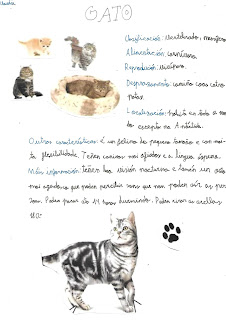 GATO
Clasificación: Vertebrado, mamífero
Alimentación: carnívoro
Reprodución: vivíparo
Desprazamento: camiña coas catro
patas
Localización: habita en todo o mun
do excepto na Antártida.
Outras características: É un felino de pequeno tamaño e con moi
ta flexibilidade. Teñen caninos moi afiados e a lingua áspera.
Máis información: Teñen boa visión nocturna e tamén un oído
moi agudo que poden percibir sons que non poden oír as per
soas. Poden pasar ata 14 horas durmindo. Poden xirar as orellas
180°